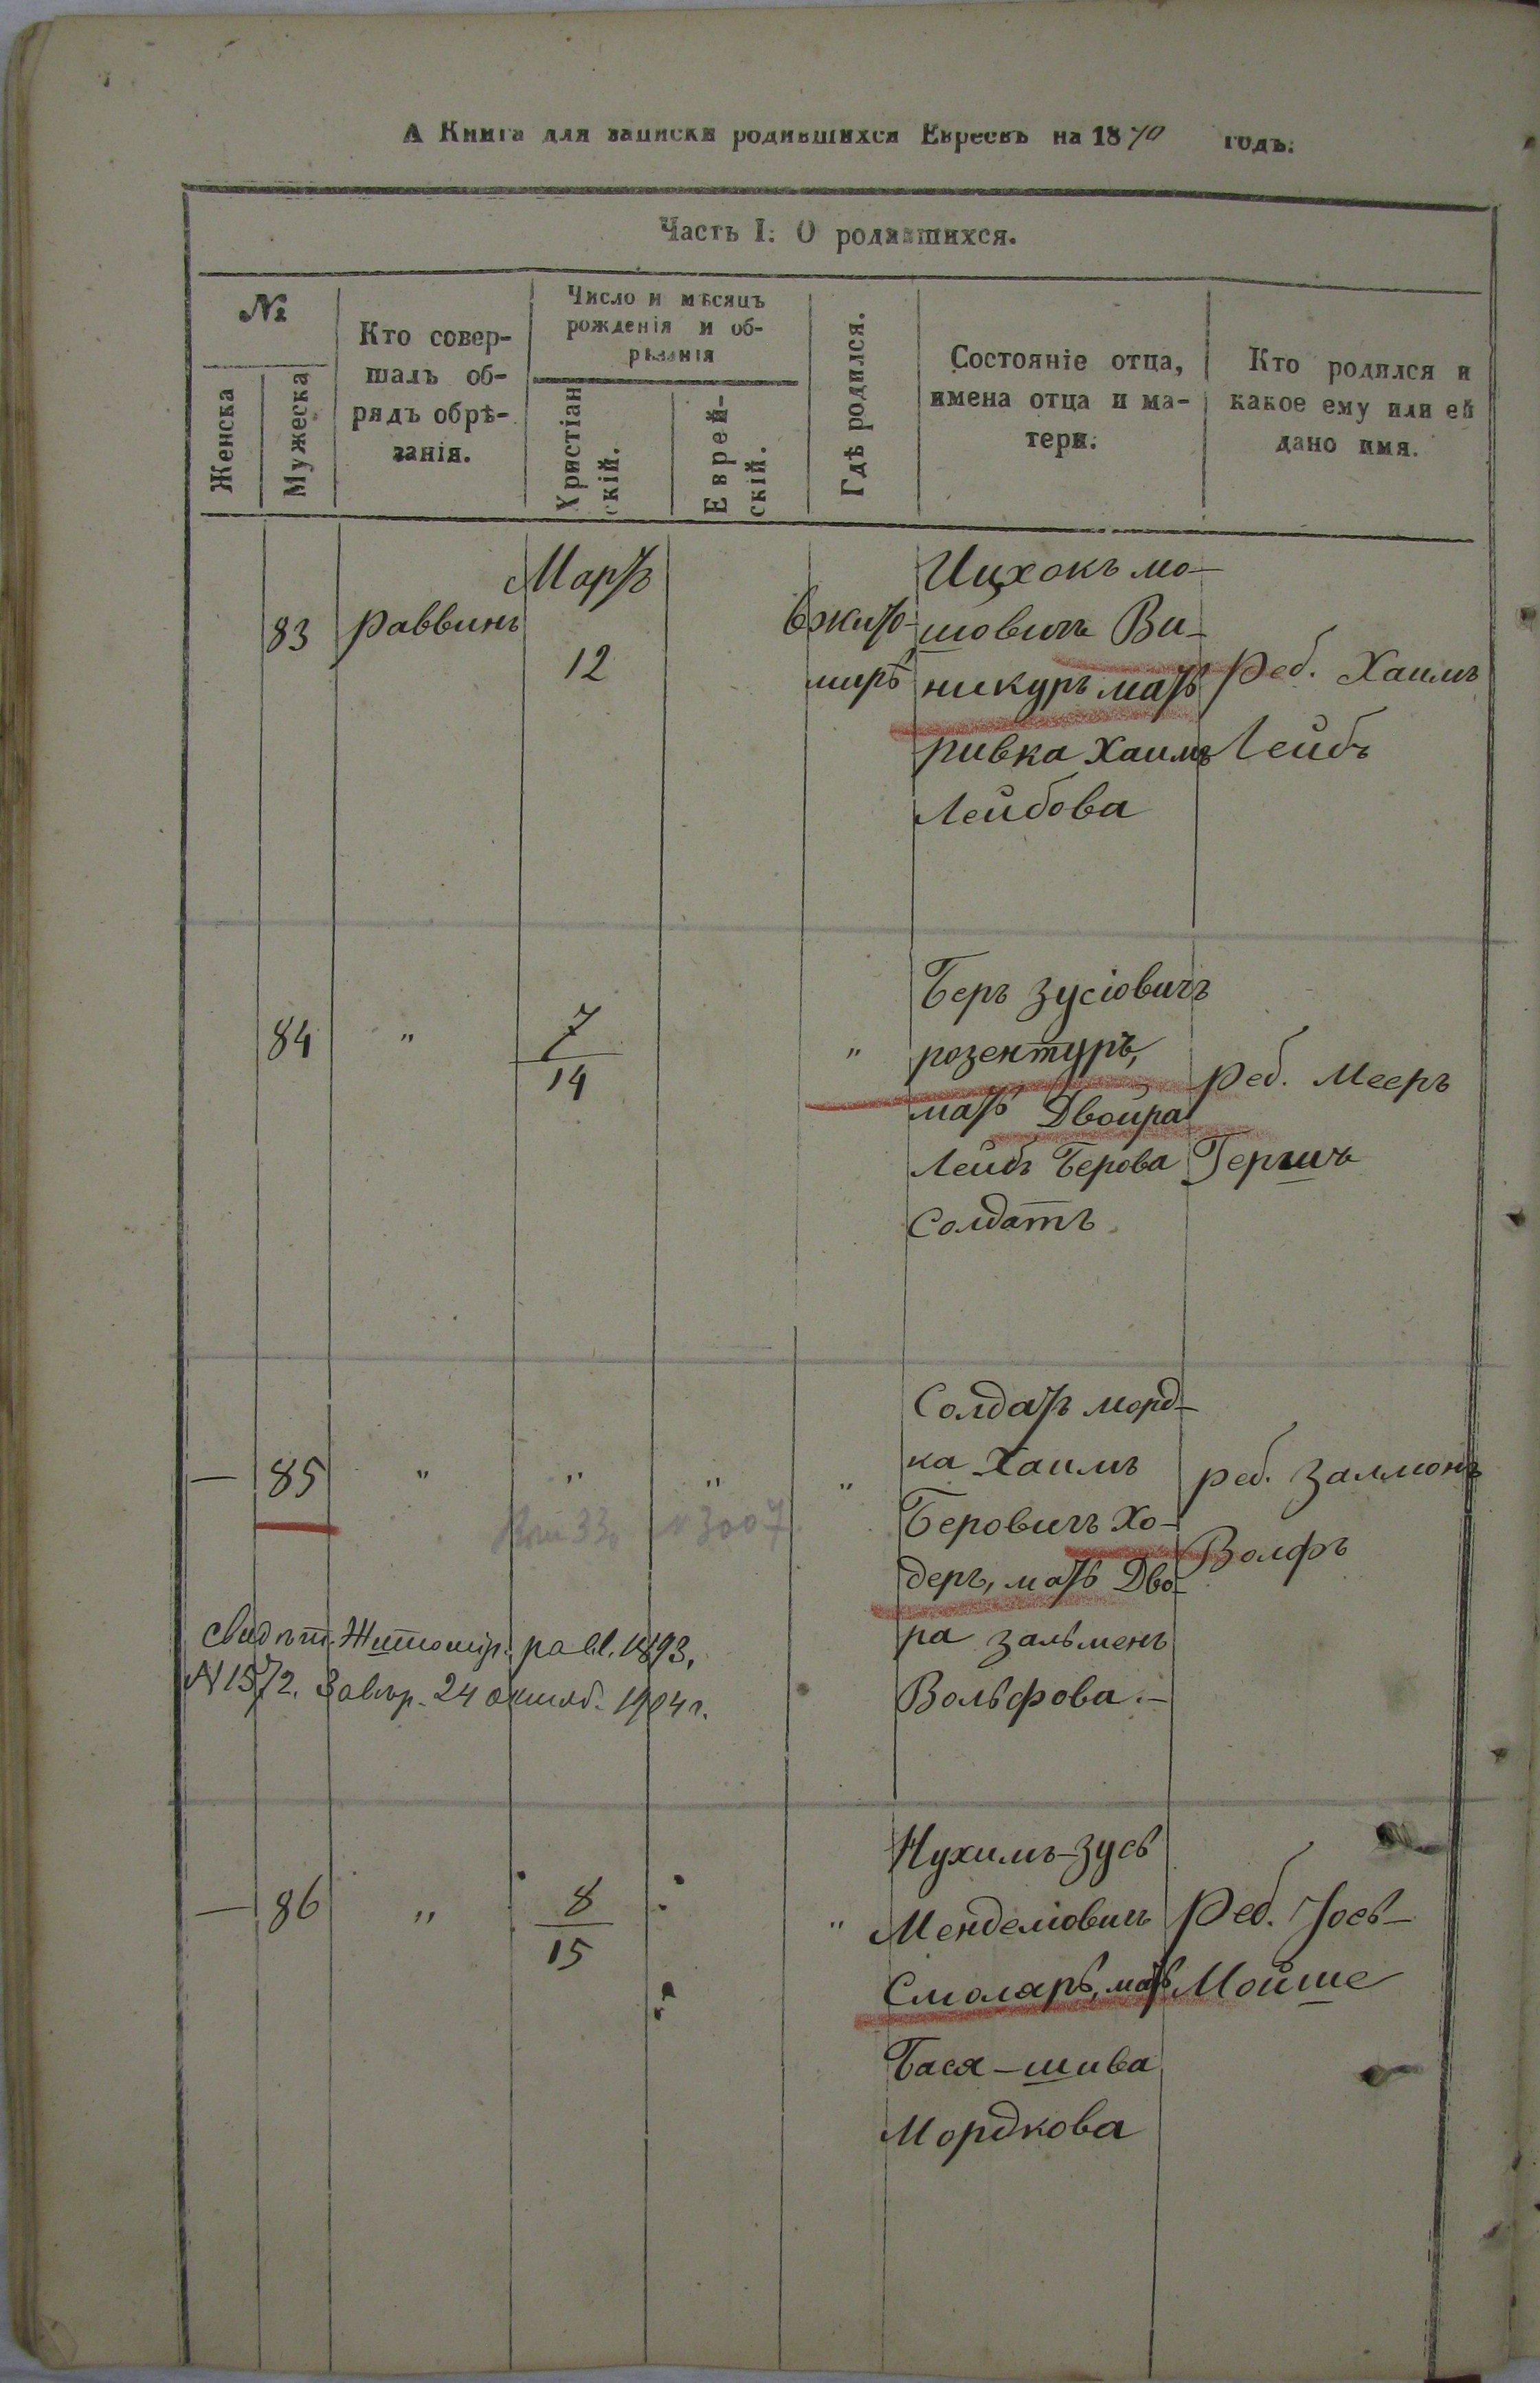 А Книга для записки родившихся Евреевъ на 1870 годъ.
Часть I. О родившихся.
№
Женска
Мужеска
Кто совер-
шалъ об-
рядъ обрѣ-
занія.
Число и мѣсяцъ
рожденія и об-
рѣзанія
Христіан
скій.
Еврей-
скій.
Гдѣ родился.
Состояніе отца,
имена отца и ма-
тери.
Кто родился и
какое ему или ей
дано имя.
83
раввинъ
Мартъ
12
в Жито-
мирѣ
Ицхокъ мо-
шовичъ Ви-
никуръ мать
ривка Хаимъ
Лейбова
Реб. Хаимъ
Лейбъ
84
"
7
14
"
Беръ Зусіовичъ
розентуръ,
мать Двойра
Лейбъ Берова
Солдатъ
Реб. Мееръ
Гершъ
—
85
"
"
"
"
№ 3007
Солдатъ морд-
ка Хаимъ
Беровичъ Хо-
деръ, мать Дво-
ра Зальменъ
Вольфова.—
реб. Залмонъ
Волфъ
свидѣт. Житомір. равв. 1893,
N 1572. Завѣр. 24 октяб. 1904 г.
—
86
"
8
15
"
Нухимъ-Зусь
Менделіовичъ
Смоляръ, мать
Бася-шива
Мордкова
Реб. Іось-
Мойше